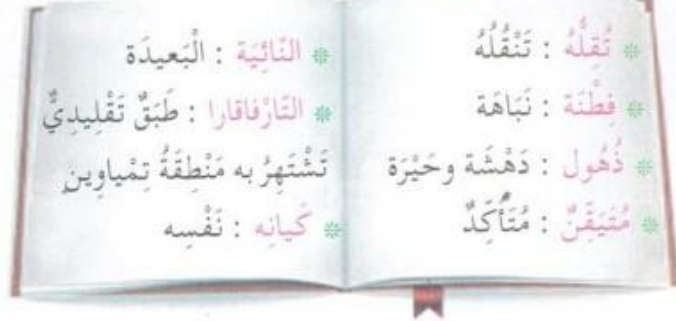 تُقِلُّهُ : تَنْقُلُهُ
فِطْنَة : نَبَاهَة
ذُهُول : دَهْشَة وحَيْرَة
مُتَيَقِّنٌ : مُتَأَكِّدٌ
النَّائِيَة : الْبَعيدَة
التَّارْفاقارا : طَبَقٌ تَقْليدِيٌّ
تَشْتَهِرُ به مَنْطِقَةُ تِمْياوِين
كَيانِه : نَفْسِه